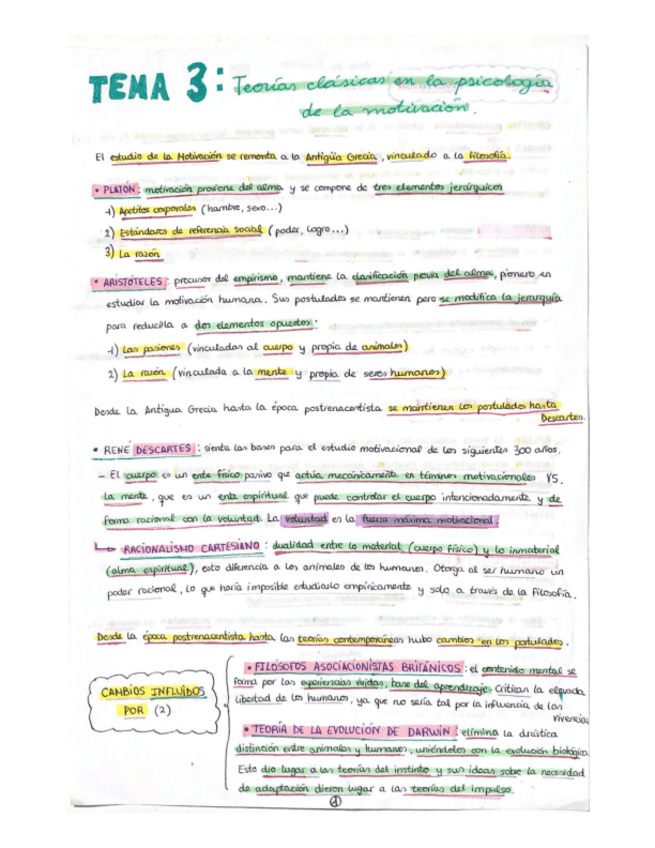 TEMA 3: Teorías clásicas en la psicología
de la motivación.
El estudio de la Motivación se remonta a la Antigüa Grecia, vinculado a la filosofía.
• PLATÓN: motivación proviene del alma y se compone de tres elementos jerárquicos
1) Apetitos corporales (hambre, sexo...)
2) Estándares de referencia social (poder, logro...)
3) La razón
• ARISTÓTELES: precursor del empirismo, mantiene la clasificación previa del alma, pionero en
estudiar la motivación humana. Sus postulados se mantienen pero se modifica la jerarquía
para reducirla a dos elementos opuestos:
1) Las pasiones (vinculadas al cuerpo y propia de animales)
2) La razón (vinculada a la mente y propia de seres humanos)
Desde la Antigua Grecia hasta la época postrenacentista se mantienen los postulados hasta
Descartes.
• RENÉ DESCARTES: sienta las bases para el estudio motivacional de los siguientes 300 años.
- El cuerpo es un ente físico pasivo que actúa mecánicamente en términos motivacionales VS.
la mente, que es un ente espiritual que puede controlar el cuerpo intencionadamente y de
forma racional con la voluntad. La voluntad es la fuerza máxima motivacional.
↳ RACIONALISMO CARTESIANO: dualidad entre lo material (cuerpo físico) y lo inmaterial
(alma espiritual), esto diferencia a los animales de los humanos. Otorga al ser humano un
poder racional, lo que haría imposible estudiarlo empíricamente y solo a través de la Filosofía.
Desde la época postrenacentista hasta las teorías contemporáneas hubo cambios en los postulados.
CAMBIOS INFLUÍDOS
POR (2)
• FILÓSOFOS ASOCIACIONISTAS BRITÁNICOS: el contenido mental se
forma por las experiencias vividas, base del aprendizaje. Critican la elevada
libertad de los humanos, ya que no sería tal por la influencia de las
vivencias
• TEORÍA DE LA EVOLUCIÓN DE DARWIN: elimina la drástica
distinción entre animales y humanos, uniéndolos con la evolución biológica
Esto dio lugar a las teorías del instinto y sus ideas sobre la necesidad
de adaptación dieron lugar a las teorías del impulso.
1